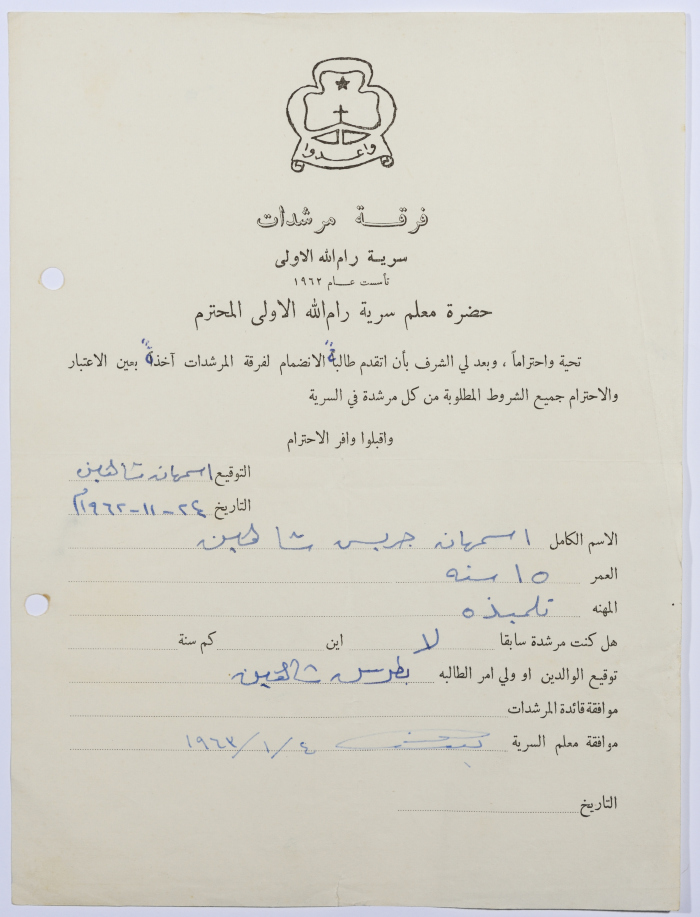 وأعدوا
فرقة مرشدات
سرية رام الله الاولى
تأسست عام ١٩٦٢
حضرة معلم سرية رام الله الاولى المحترم
تحية واحتراماً ، وبعد لي الشرف بأن اتقدم طالبةً الانضمام لفرقة المرشدات آخذةً بعين الاعتبار
والاحترام جميع الشروط المطلوبة من كل مرشدة في السرية
واقبلوا وافر الاحترام
التوقيع اسمهان شاهين
التاريخ ٢٤-١١-١٩٦٢م
الاسم الكامل اسمهان جريس شاهين
العمر ١٥ سنه
المهنه تلميذه
هل كنت مرشدة سابقا لا اين كم سنة
توقيع الوالدين او ولي امر الطالبه بطرس شاهين
موافقة قائدة المرشدات
موافقة معلم السرية ١٩٦٣/١/٤
التاريخ